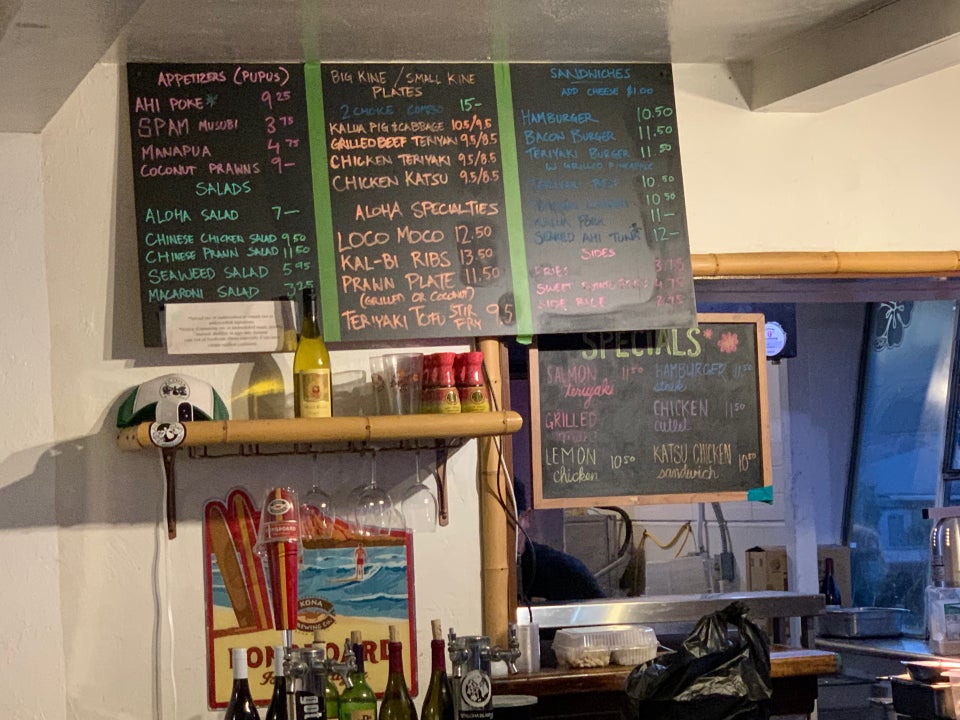 APPETIZERS (PUPUS)
AHI POKE* 9 25
SPAM MUSUBI 3 75
MANAPUA 4 75
COCONUT PRAWNS 9—
SALADS
ALOHA SALAD 7—
CHINESE CHICKEN SALAD 9 50
CHINESE PRAWN SALAD 11 50
SEAWEED SALAD 5 95
MACARONI SALAD 3 25
BIG KINE / SMALL KINE
PLATES
2 CHOICE COMBO 15—
KALUA PIG & CABBAGE 10.5/9.5
GRILLED BEEF TERIYAKI 9.5/8.5
CHICKEN TERIYAKI 9.5/8.5
CHICKEN KATSU 9.5/8.5
ALOHA SPECIALTIES
LOCO MOCO 12.50
KAL-BI RIBS 13.50
PRAWN PLATE 11.50
(GRILLED OR COCONUT)
TERIYAKI TOFU STIR FRY 9.5
SANDWICHES
ADD CHEESE $1.00
HAMBURGER 10.50
BACON BURGER 11.50
TERIYAKI BURGER 11 50
W/ GRILLED PINEAPPLE
10 50
10 50
KALUA PORK 11—
SEARED AHI TUNA 12—
SIDES
FRIES 3.75
SWEET 4.75
SIDE RICE 2.25
SPECIALS
SALMON 11 50
teriyaki
GRILLED
LEMON 10 50
chicken
HAMBURGER 11 50
steak
CHICKEN 11 50
cutlet
KATSU CHICKEN 10 50
sandwich
KONA
BREWING CO.
LONGBOARD